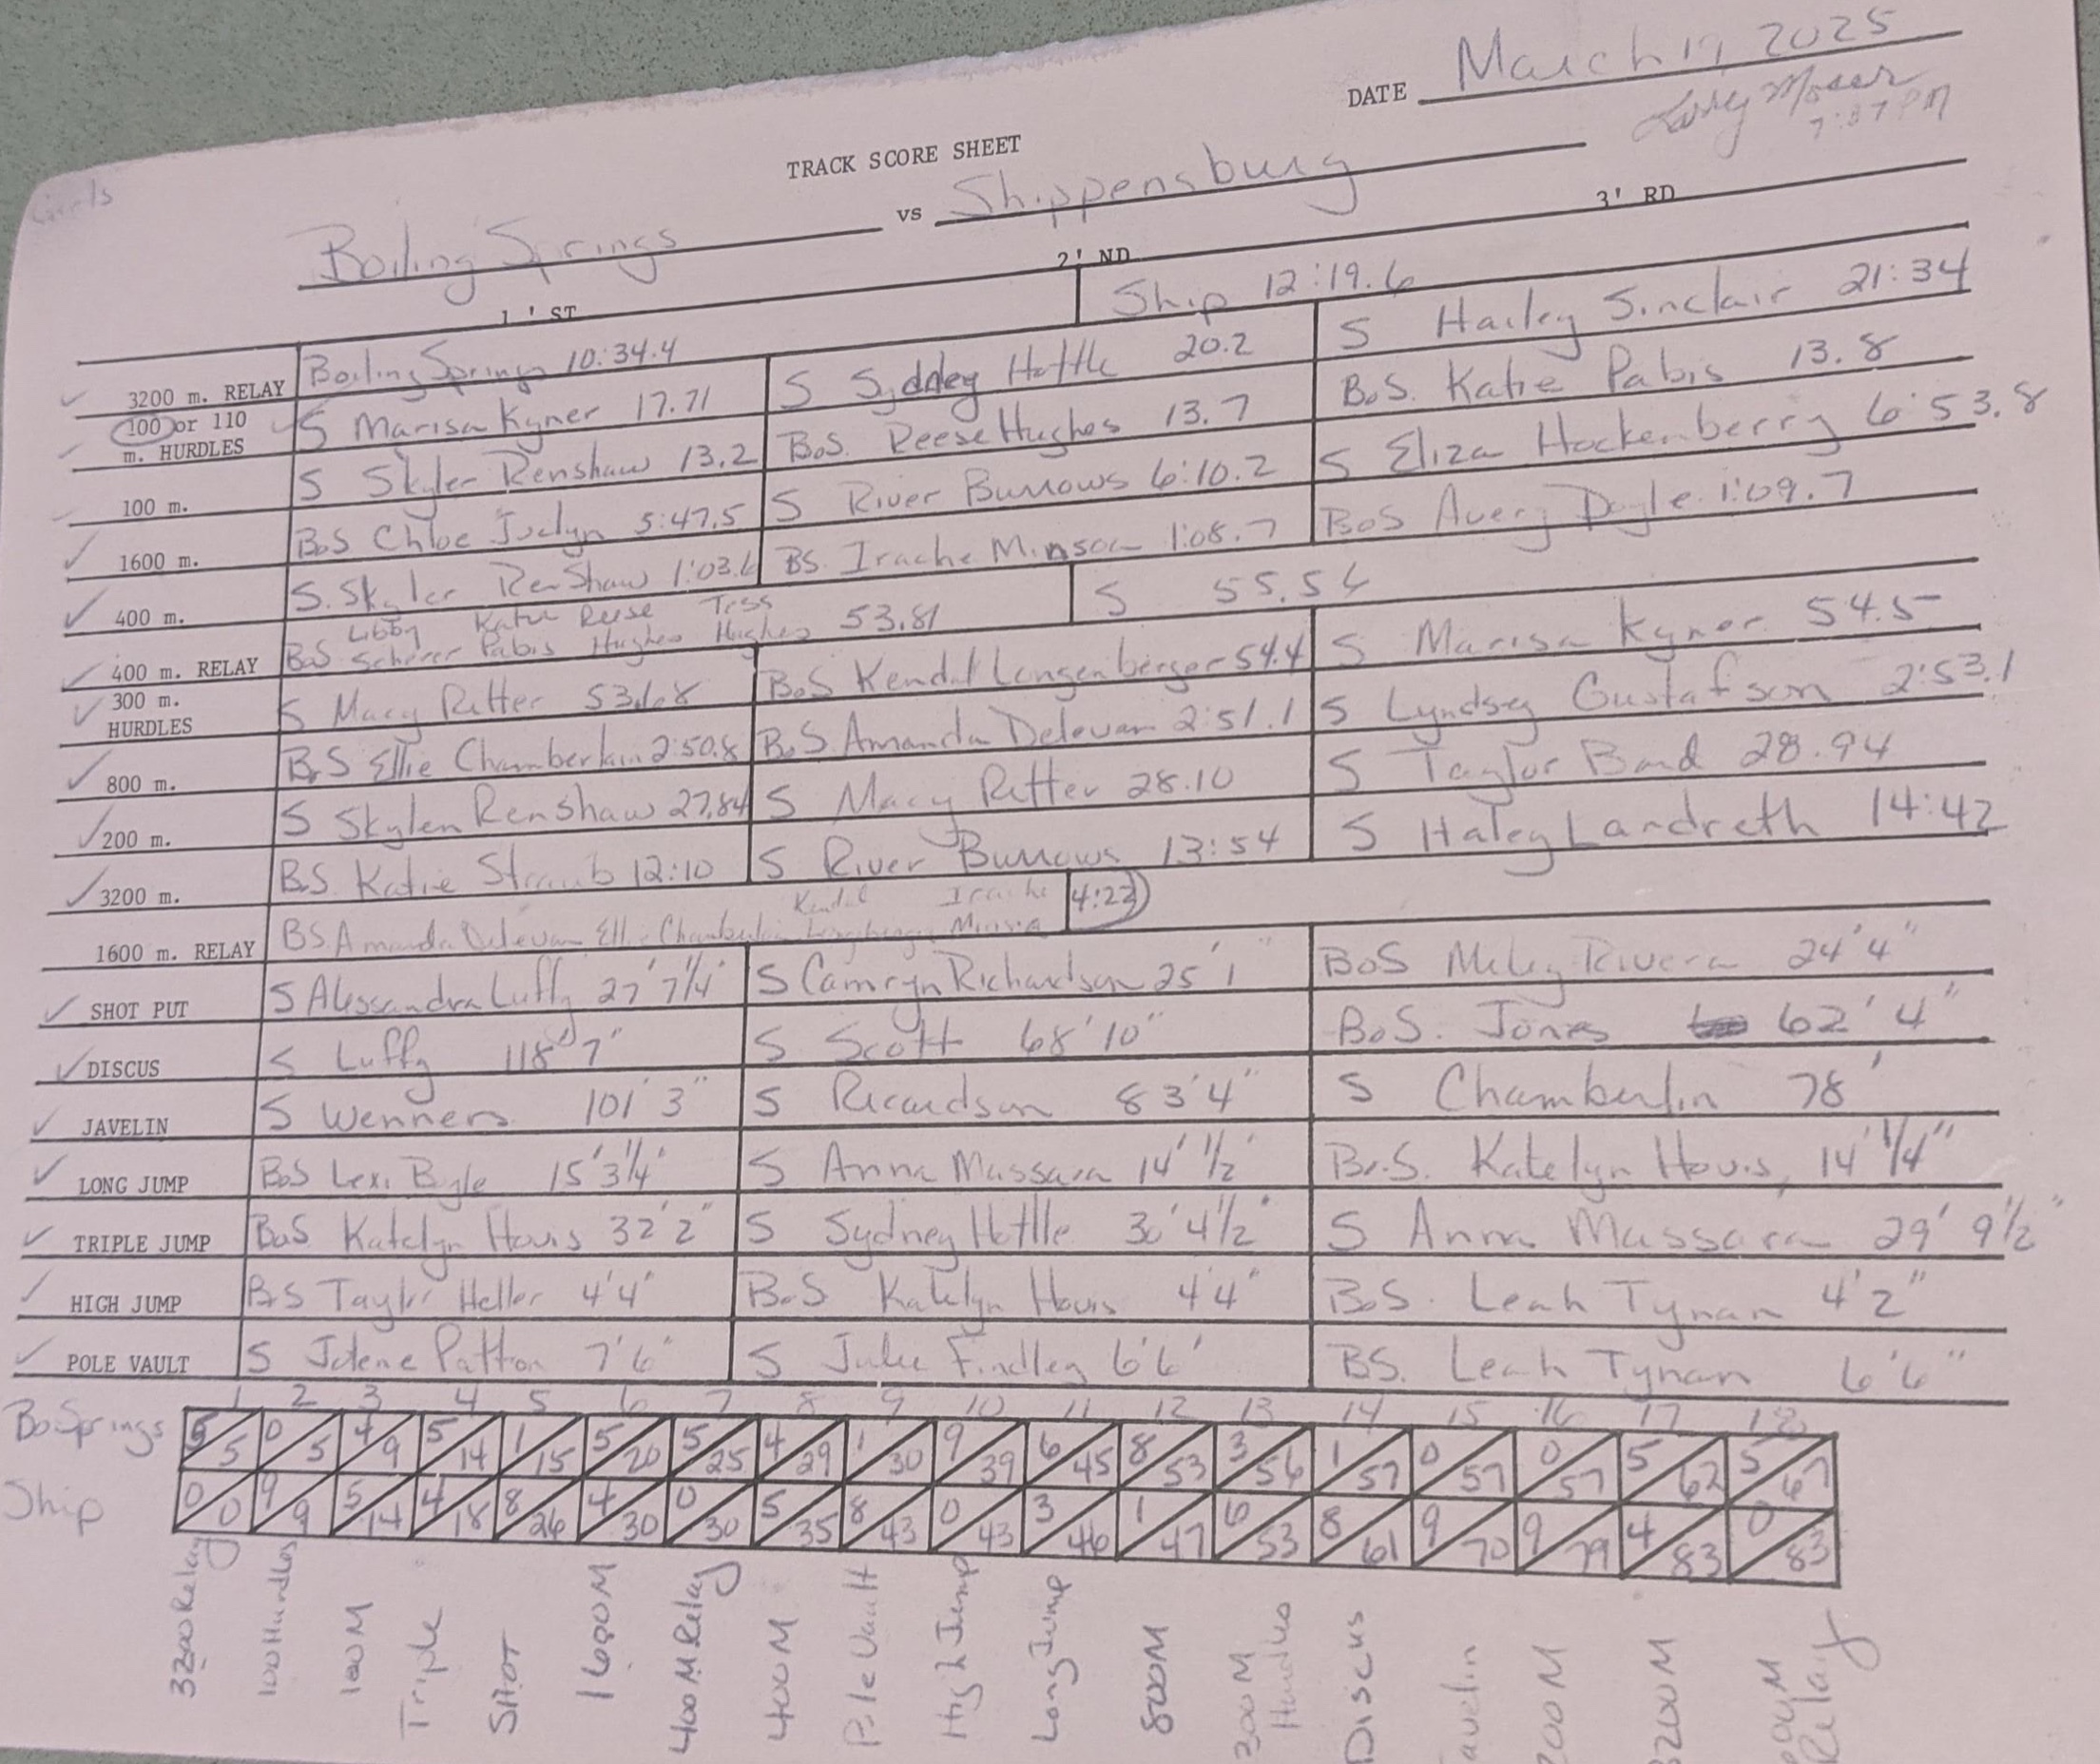 DATE March 19, 2025
7:37 PM
Girls
TRACK SCORE SHEET
Boiling Springs vs Shippensburg
1'ST 2'ND 3'RD
3200 m. RELAY Boiling Springs 10:34.4 Ship 12:19.6
100 or 110 m. HURDLES S Marisa Kyner 17.71 S Sydney Hottle 20.2 S Hailey Sinclair 21:34
100 m. S Skyler Renshaw 13.2 BoS Reese Hughes 13.7 BoS. Katie Pabis 13.8
1600 m. BoS Chloe Joclyn 5:47.5 S River Burrows 6:10.2 S Eliza Hockenberry 6:53.8
400 m. S. Skyler RenShaw 1:03.6 BS. Irache Minson 1:08.7 BoS Avery Doyle 1:09.7
400 m. RELAY BoS Libby Scherer Katie Pabis Reese Hughes Tess Hughes 53.81 S 55.56
300 m. HURDLES S Macy Ritter 53.68 BoS Kendal Longenberger 54.4 S Marisa Kyner 54.5
800 m. BoS Ellie Chamberlain 2:50.8 BoS Amanda Delevan 2:51.1 S Lyndsey Gustafson 2:53.1
200 m. S Skyler Renshaw 27.84 S Macy Ritter 28.10 S Taylor Bard 28.94
3200 m. BS. Katie Straub 12:10 S River Burrows 13:54 S Haley Landreth 14:42
1600 m. RELAY BS. Amanda Delevan Ellie Chamberlin Kendal Longenberger Irache Minson 4:22
SHOT PUT S Alessandra Luffy 27'7¼" S Camryn Richardson 25'1" BoS Miley Rivera 24'4"
DISCUS S Luffy 118'7" S Scott 68'10" BoS. Jones 62'4"
JAVELIN S Wenners 101'3" S Ricardson 83'4" S Chamberlin 78'
LONG JUMP BoS Lexi Boyle 15'3¼" S Anna Massara 14'½" Bo.S. Katelyn Hovis, 14'¼"
TRIPLE JUMP BoS Katelyn Hovis 32'2" S Sydney Hottle 30'4½" S Anna Massara 29'9½"
HIGH JUMP BoS Taylor Heller 4'4" BoS Katelyn Hovis 4'4" BoS. Leah Tynan 4'2"
POLE VAULT S Jolene Patton 7'6" S Julie Findley 6'6' BS. Leah Tynan 6'6"
1 2 3 4 5 6 7 8 9 10 11 12 13 14 15 16 17 18
Bo Springs 5/5 0/5 4/9 5/14 1/15 5/20 5/25 4/29 1/30 9/39 6/45 8/53 3/56 1/57 0/57 0/57 5/62 5/67
Ship 0/0 9/9 5/14 4/18 8/26 4/30 0/30 5/35 8/43 0/43 3/46 1/47 6/53 8/61 9/70 9/79 4/83 0/83
3200 Relay 100 Hurdles 100 M Triple SHOT 1600 M 400 M Relay 400 M Pole Vault High Jump Long Jump 800 M 300 M Hurdles Discus avelin 200 M 3200 M Relay